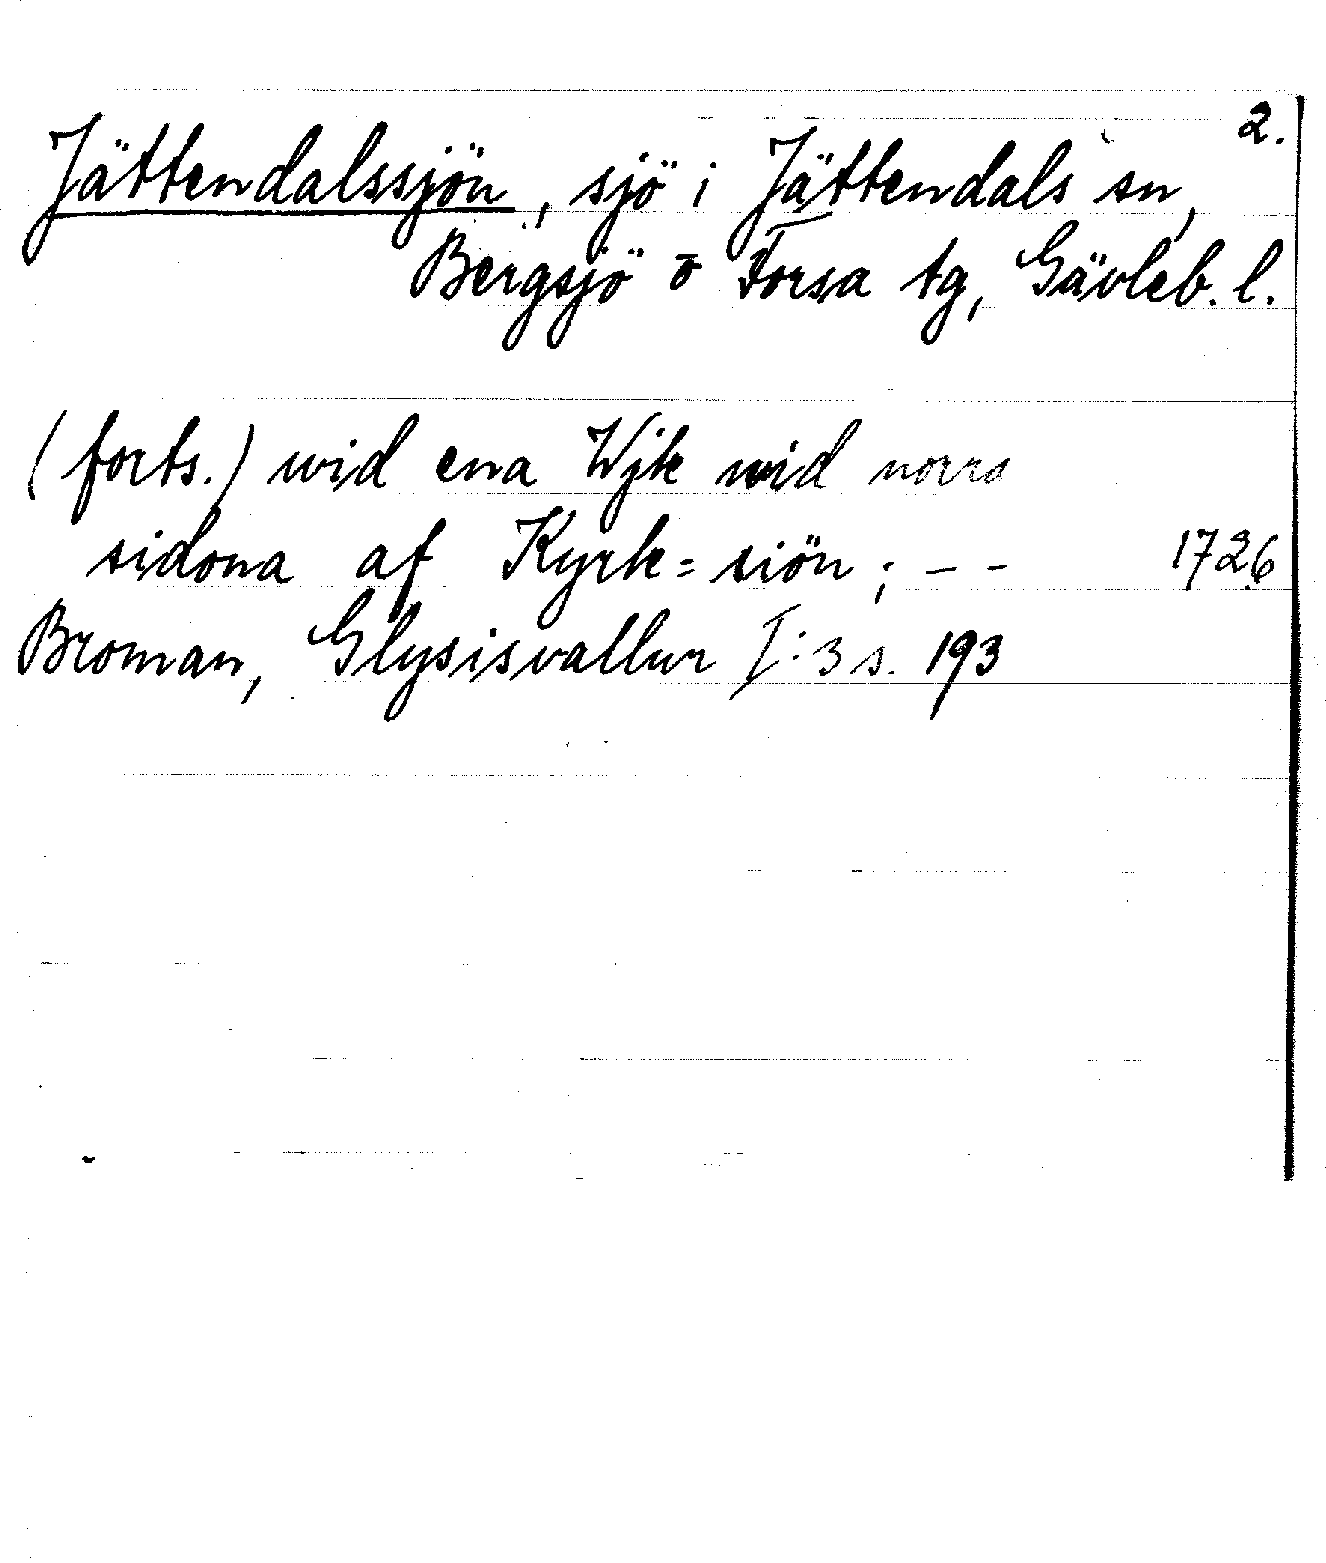 2.
Jättendalssjön, sjö i Jättendals sn,
Bergsjö o Forsa tg, Gävleb. l.
(forts.) wid ena Wjk wid norra
sidona af Kyrk=siön; – – 1726
Broman, Glysisvallur I:3 s. 193